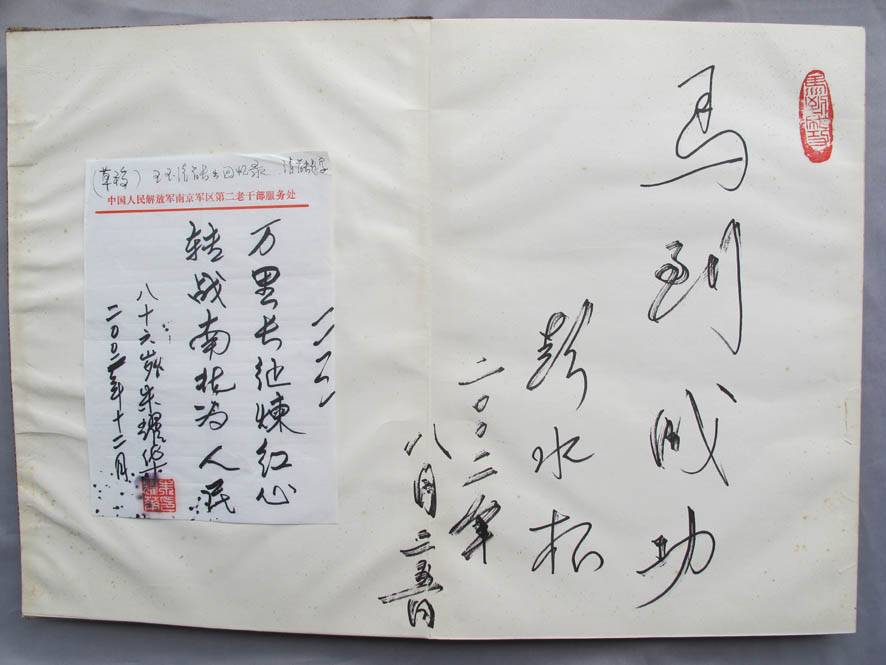 (草稿) 回忆录
中国人民解放军南京军区第二老干部服务处
万里长征煉红心
转战南北为人民
八十六岁朱耀华
二〇〇二年十二月
马到成功
彭水
二〇〇二年
八月二五日